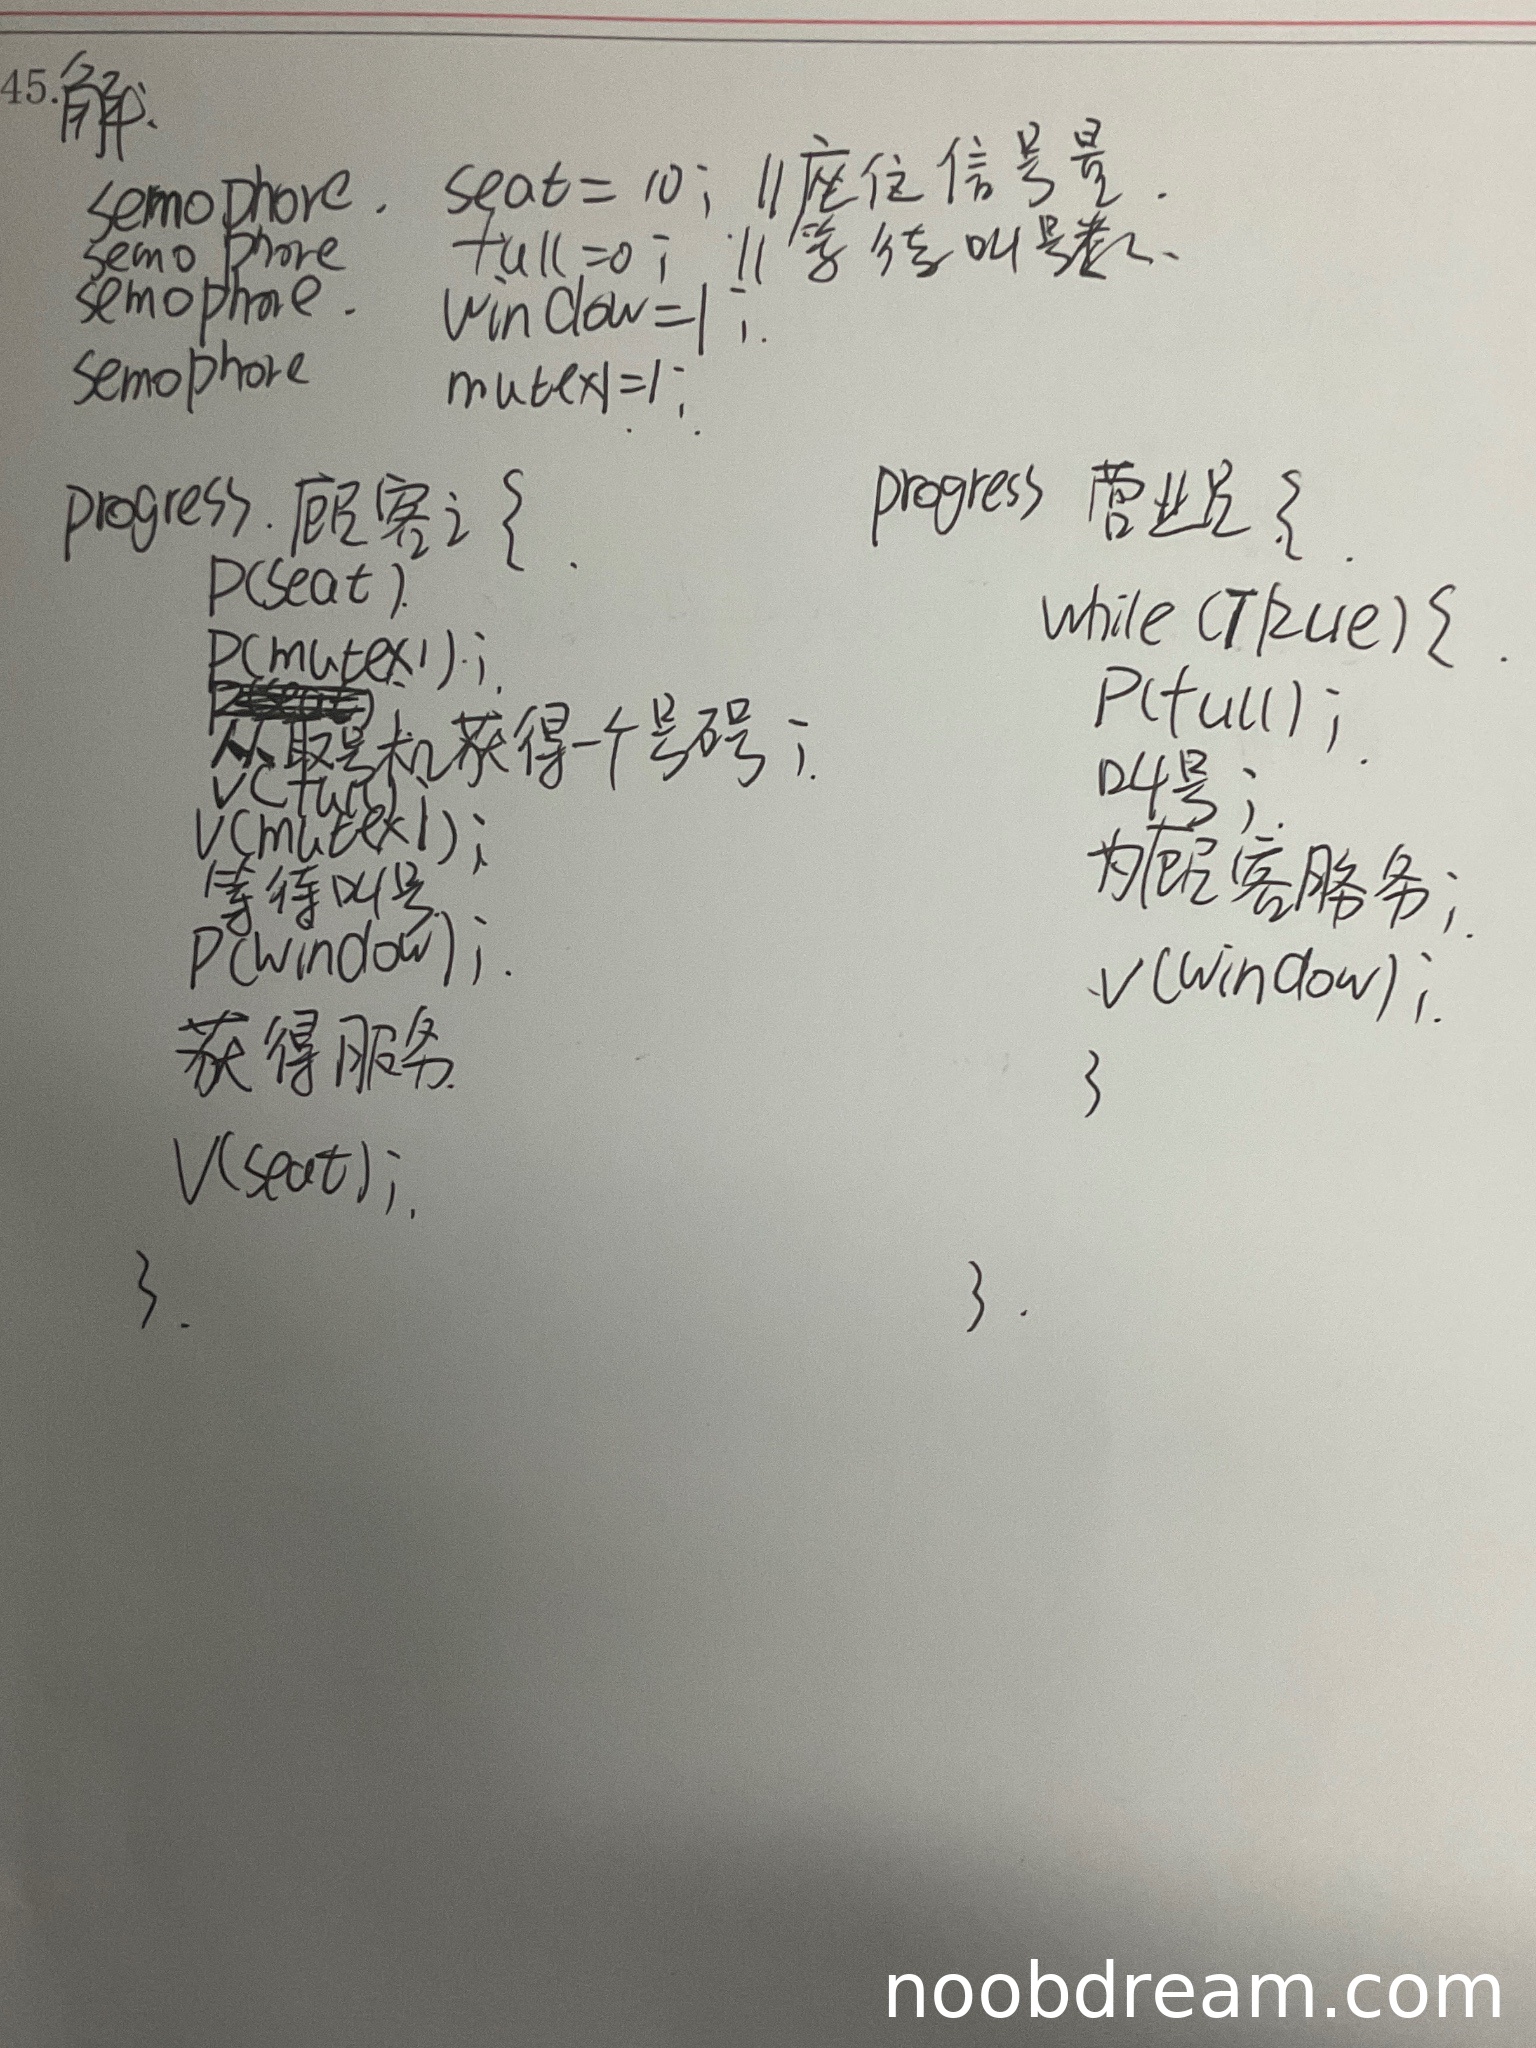 45.解、
semophore. seat=10; //座位信号量.
semophore full=0; //等待叫号数、
semophore. window=1;
semophore mutex1=1;
progress. 顾客i {
P(seat).
P(mutex1);
从取号机获得一个号码;
V(full);
V(mutex1);
等待叫号
P(window);
获得服务.
V(seat);
}.
progress 营业员 {
while (TRUE) {
P(full);
叫号;
为顾客服务;
V(window);
}
}.
noobdream.com